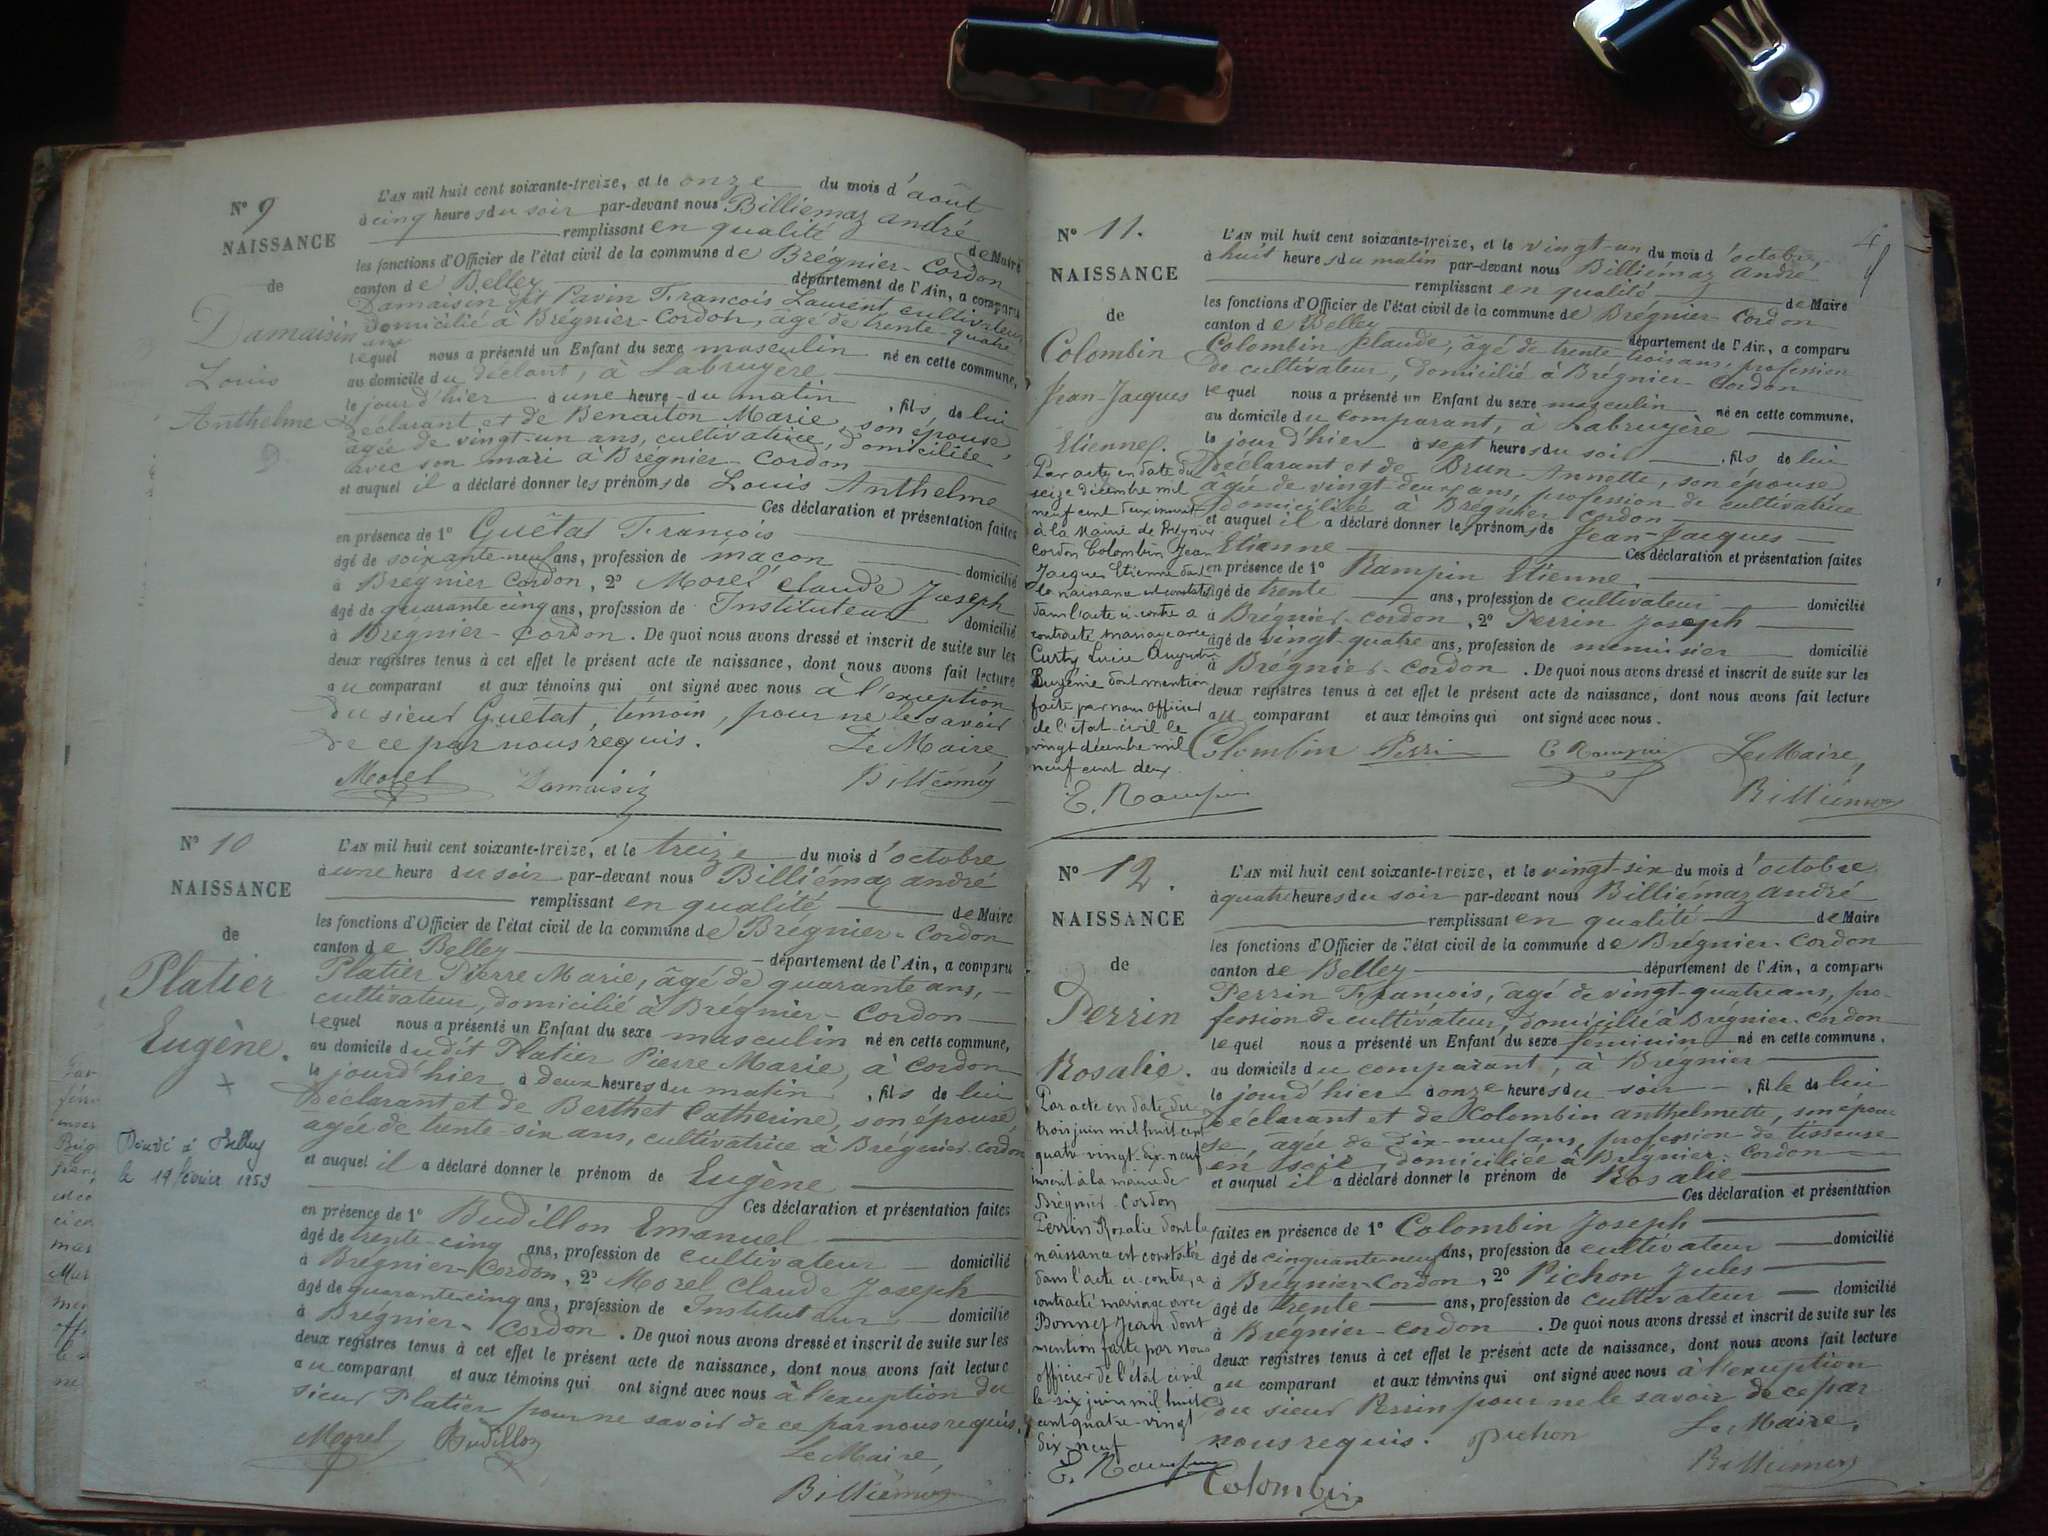 N° 9
NAISSANCE
de
Damaisin
Louis
Anthelme
L'AN mil huit cent soixante-treize, et le onze du mois d'août
à cinq heures du soir par-devant nous Billiemaz André
remplissant en qualité de Maire
les fonctions d'Officier de l'état civil de la commune de Brégnier-Cordon
canton de Belley département de l'Ain, a comparu
Damaisin dit Pavin François Laurent, cultivateur
domicilié à Brégnier-Cordon, âgé de trente-quatre
ans
lequel nous a présenté un Enfant du sexe masculin né en cette commune,
au domicile du déclarant, à Labruyère
le jour d'hier à une heure du matin, fils de lui
déclarant et de Benaiton Marie, son épouse,
âgée de vingt-un ans, cultivatrice, domiciliée
avec son mari à Brégnier-Cordon
et auquel il a déclaré donner les prénoms de Louis Anthelme
Ces déclaration et présentation faites
en présence de 1° Guétat François
âgé de soixante-neuf ans, profession de maçon domicilié
à Brégnier Cordon, 2° Morel Claude Joseph
âgé de quarante cinq ans, profession de Instituteur domicilié
à Brégnier-Cordon. De quoi nous avons dressé et inscrit de suite sur les
deux registres tenus à cet effet le présent acte de naissance, dont nous avons fait lecture
au comparant et aux témoins qui ont signé avec nous à l'exception
du sieur Guétat, témoin, pour ne le savoir
de ce par nous requis. Le Maire,
Morel Damaisin Billiémaz
N° 10
NAISSANCE
de
Platier
Eugène.
Décédé à Belley
le 19 février 1959
L'AN mil huit cent soixante-treize, et le treize du mois d'octobre
à une heure du soir par-devant nous Billiémaz André
remplissant en qualité de Maire
les fonctions d'Officier de l'état civil de la commune de Brégnier-Cordon
canton de Belley département de l'Ain, a comparu
Platier Pierre Marie, âgé de quarante ans,
cultivateur, domicilié à Brégnier-Cordon
lequel nous a présenté un Enfant du sexe masculin né en cette commune,
au domicile dudit Platier Pierre Marie, à Cordon
le jour d'hier à deux heures du matin, fils de lui
déclarant et de Berthet Catherine, son épouse,
âgée de trente-six ans, cultivatrice à Brégnier-Cordon
et auquel il a déclaré donner le prénom de Eugène
Ces déclaration et présentation faites
en présence de 1° Budillon Emanuel
âgé de trente-cinq ans, profession de cultivateur domicilié
à Brégnier-Cordon, 2° Morel Claude Joseph
âgé de quarante cinq ans, profession de Instituteur domicilié
à Brégnier-Cordon. De quoi nous avons dressé et inscrit de suite sur les
deux registres tenus à cet effet le présent acte de naissance, dont nous avons fait lecture
au comparant et aux témoins qui ont signé avec nous à l'exception du
sieur Platier pour ne savoir de ce par nous requis.
Morel Budillon Le Maire,
Billiémaz
N° 11.
NAISSANCE
de
Colombin
Jean-Jacques
Etienne.
Par acte en date du
seize décembre mil
neuf cent deux inscrit
à la Mairie de Brégnier
Cordon Colombin Jean
Jacques Etienne dont
la naissance est constatée
dans l'acte ci-contre a
contracté mariage avec
Curty Lucie Augustine
Eugénie dont mention
faite par nous officier
de l'état-civil le
vingt décembre mil
neuf cent deux
E. Rampin
L'AN mil huit cent soixante-treize, et le vingt-un du mois d'octobre,
à huit heures du matin par-devant nous Billiémaz André
remplissant en qualité de Maire
les fonctions d'Officier de l'état civil de la commune de Brégnier-Cordon
canton de Belley département de l'Ain, a comparu
Colombin Claude, âgé de trente trois ans, profession
de cultivateur, domicilié à Brégnier-Cordon
lequel nous a présenté un Enfant du sexe masculin né en cette commune,
au domicile du comparant, à Labruyère
le jour d'hier à sept heures du soir, fils de lui
déclarant et de Brun Annette, son épouse
âgée de vingt-deux ans, profession de cultivatrice
domiciliée à Brégnier Cordon
et auquel il a déclaré donner les prénoms de Jean-Jacques
Etienne Ces déclaration et présentation faites
en présence de 1° Rampin Etienne
âgé de trente ans, profession de cultivateur domicilié
à Brégnier-Cordon, 2° Perrin Joseph
âgé de vingt-quatre ans, profession de menuisier domicilié
à Brégnier-Cordon. De quoi nous avons dressé et inscrit de suite sur les
deux registres tenus à cet effet le présent acte de naissance, dont nous avons fait lecture
au comparant et aux témoins qui ont signé avec nous.
Colombin Perrin E Rampin Le Maire,
Billiémaz
N° 12.
NAISSANCE
de
Perrin
Rosalie.
Par acte en date du
trois juin mil huit cent
quatre vingt-dix-neuf
inscrit à la mairie de
Brégnier Cordon
Perrin Rosalie dont la
naissance est constatée
dans l'acte ci-contre, a
contracté mariage avec
Bonnet Jean dont
mention faite par nous
officier de l'état civil
le six juin mil huit
cent quatre-vingt
dix-neuf
E. Rampin
L'AN mil huit cent soixante-treize, et le vingt-six du mois d'octobre
à quatre heures du soir par-devant nous Billiémaz André
remplissant en qualité de Maire
les fonctions d'Officier de l'état civil de la commune de Brégnier-Cordon
canton de Belley département de l'Ain, a comparu
Perrin François, âgé de vingt-quatre ans, pro-
fession de cultivateur, domicilié à Brégnier-Cordon
lequel nous a présenté un Enfant du sexe féminin né en cette commune,
au domicile du comparant, à Brégnier
le jour d'hier à onze heures du soir, fille de lui
déclarant et de Colombin Anthelmette, son épou-
se, âgée de dix-neuf ans, profession de tisseuse
en soie, domiciliée à Brégnier-Cordon
et auquel il a déclaré donner le prénom de Rosalie
Ces déclaration et présentation
faites en présence de 1° Colombin Joseph
âgé de cinquante-neuf ans, profession de cultivateur domicilié
à Brégnier-Cordon, 2° Pichon Jules
âgé de trente ans, profession de cultivateur domicilié
à Brégnier-Cordon. De quoi nous avons dressé et inscrit de suite sur les
deux registres tenus à cet effet le présent acte de naissance, dont nous avons fait lecture
au comparant et aux témoins qui ont signé avec nous à l'exception
du sieur Perrin pour ne le savoir de ce par
nous requis. Pichon Le Maire,
Colombin Billiémaz